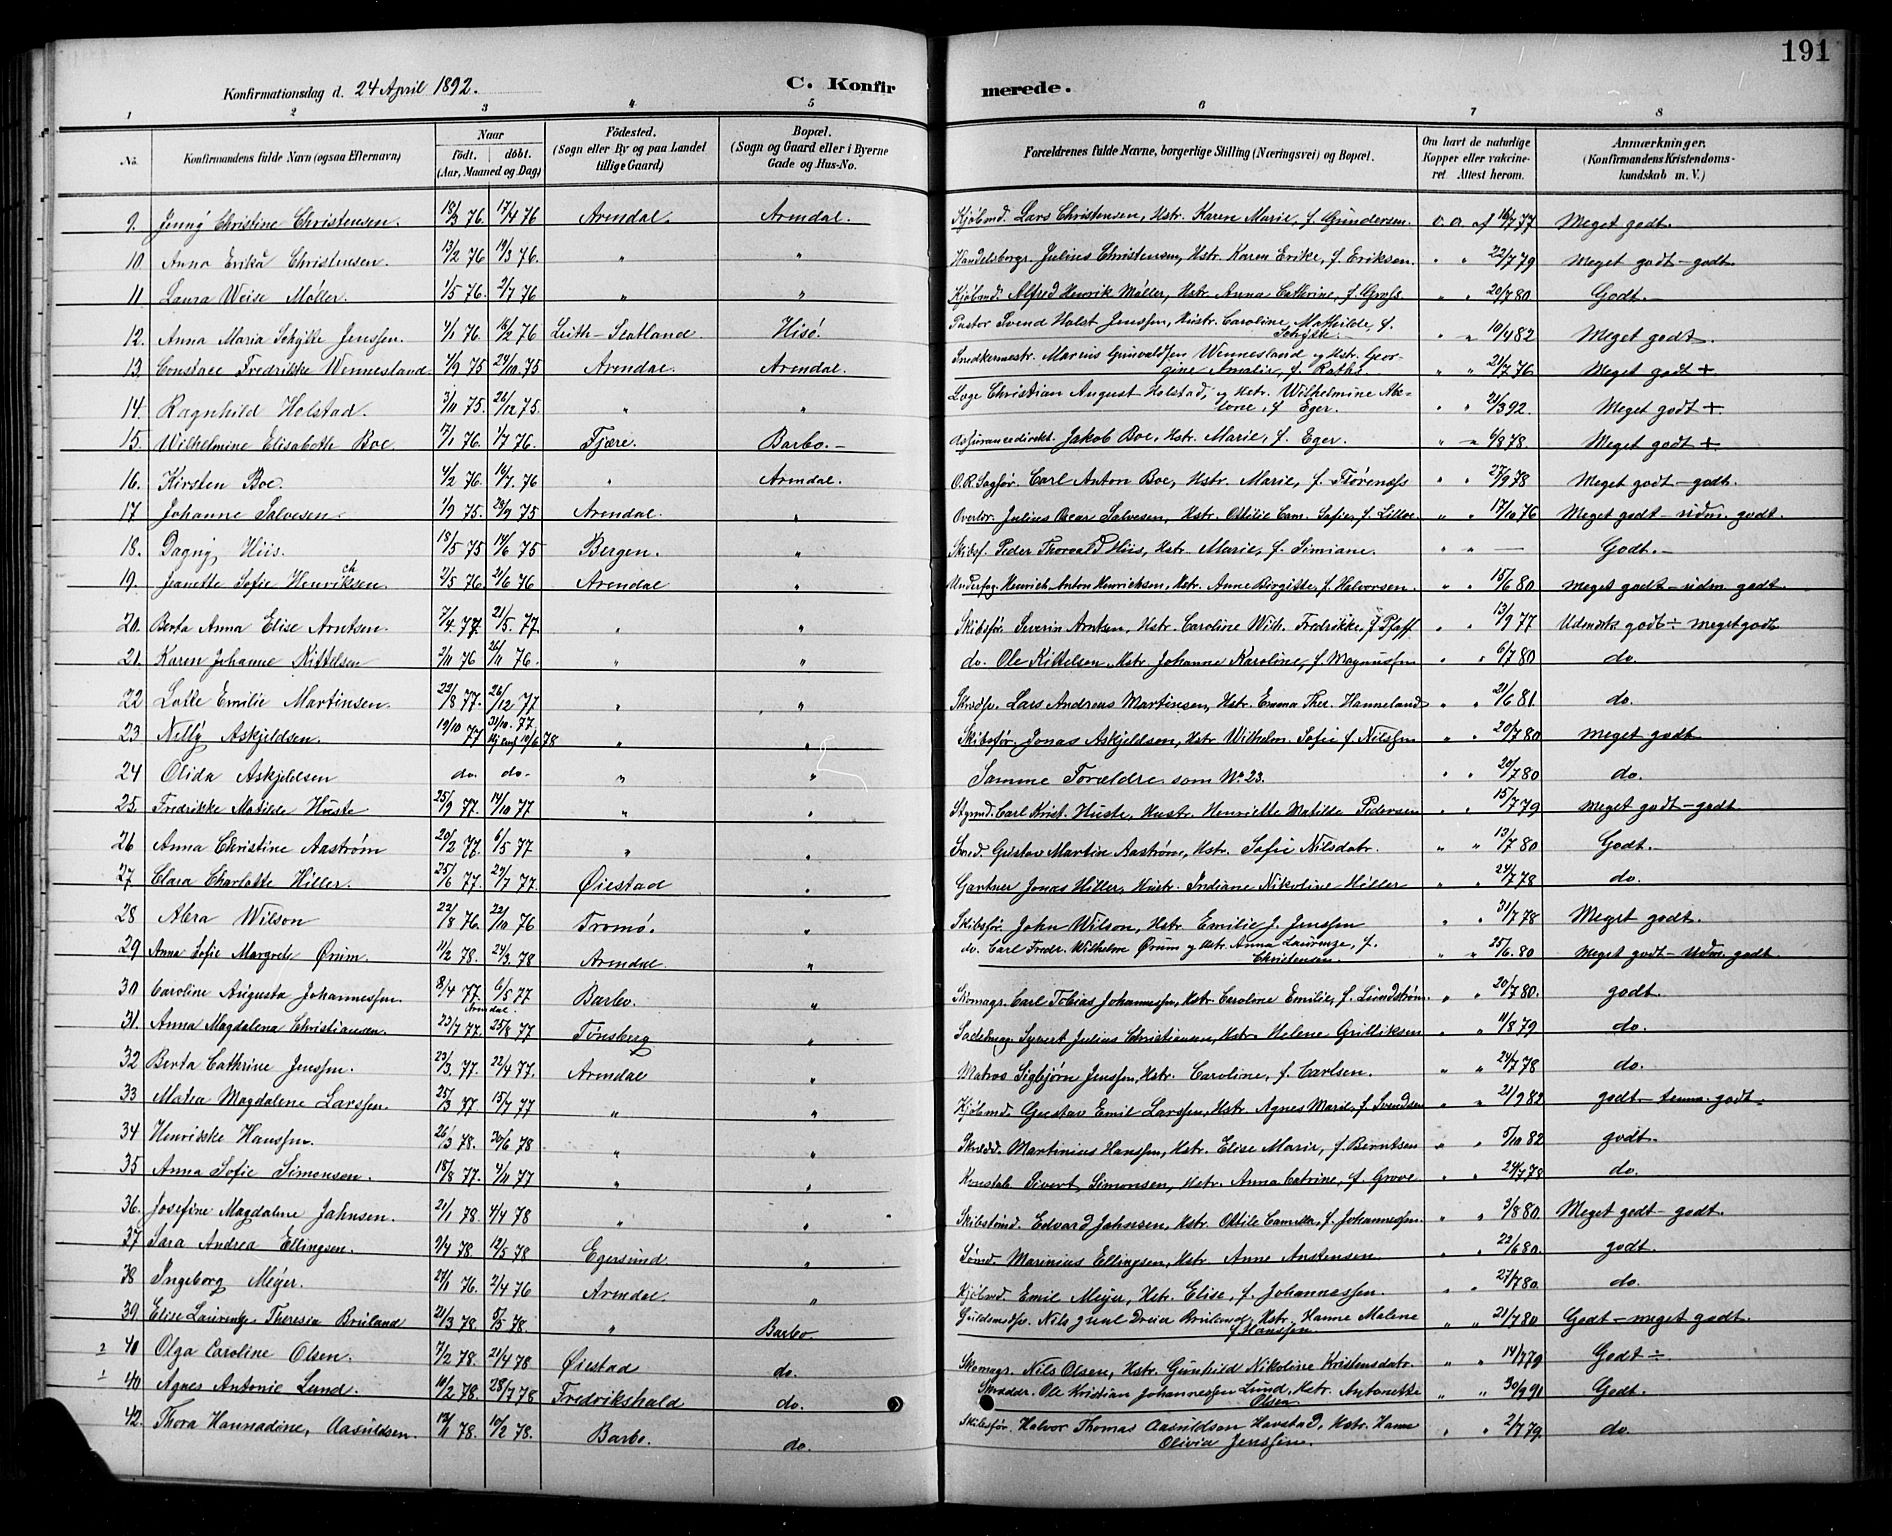 191
Konfirmationsdag d. 24 April 1892. C. Konfirmerede.
1 2 3 4 5 6 7 8
No. Konfirmandens fulde Navn (ogsaa Efternavn) Naar født. døbt. (Aar, Maaned og Dag) Fødested. (Sogn eller By og paa Landet tillige Gaard) Bopæl. (Sogn og Gaard eller i Byerne Gade og Hus-No. Forældrenes fulde Navne, borgerlige Stilling (Næringsvei) og Bopæl. Om havt de naturlige Kopper eller vakcineret Attest herom. Anmærkninger. (Konfirmandens Kristendomskundskab m. V.)
9. Jenny Christine Christensen. 18/3 76 17/4 76 Arendal. Arendal. Kjøbmd. Lars Christensen, Hstr. Karen Marie, f. Gundersen. v. a. af 16/7 77 Meget godt.
10. Anna Erika Christensen. 13/2 76 19/3 76. " " Handelsborgr. Julius Christensen, Hstr. Karen Erike, f. Eriksen. " " 22/7 79 Meget godt - godt.
11 Laura Weise Møller. 1/5 76. 2/7 76 " " Kjøbmd. Alfred Henrik Møller, Hstr. Anna Cathrine, f. " " 20/7 80 Godt.
12. Anna Maria Schytte Jenssen. 4/1 76. 16/2 76 Leith-Scotland. Hisø. Pastor Svend Holst Jenssen, Hustr. Caroline Mathilde, f. Schytte. " " 10/9 82 Meget godt.
13. Fredrikke Wennesland 7/9 75 24/10 75 Arendal. Arendal. Snedkermestr. Marius Wennesland og Hstr. Georgine Amalie, f. " " 21/7 76 Meget godt +
14. Ragnhild Holstad. 3/11 75. 26/12 75. " " Læge Christian August Holstad, og Hstr. Wilhelmine f. Eger. " " 21/3 92. Meget godt +
15. Wilhelmine Elisabeth Boe. 7/1 76. 1/7 76. Fjære. Barbo. - Assurancedirekt. Jakob Boe, Hstr. Marie, f. Eger. " " 6/8 78. Meget godt +
16. Kirsten Boe. 4/2 76 16/7 76 " Arendal. O.R.Sagfør. Carl Anton Boe, Hstr. Marie, f. " " 27/9 78 Meget godt - godt.
17 Johanne Salvesen. 1/9 75. 28/9 75 Arendal. " Julius Oscar Salvesen, Hstr. Ottilie Cam. Sofie, f. " " 17/10 76 Meget godt - udm. godt.
18. Dagny Hiis. 18/5 75 14/6 75 Bergen. " Skibsf. Peder Thorvald Hiis, Hstr. Marie, f. Simiane. " " — Godt. -
19. Jeanette Sofie Henriksen ch 7/5 76 21/6 76 Arendal " Heinrich Anton Henrichsen, Hstr. Anne Birgitte, f. Halvorsen. " " 15/6 80 meget godt - udm. godt.
20. Berta Anna Elise Arntsen. 7/4 77. 21/5. 77 " " Skibsfør. Severin Arntsen, Hstr. Caroline Wilh. Fredrikke, f. Pfaff " " 13/9 77 Udmærk. godt ÷ meget godt
21. Karen Johanne Kittelsen 2/11 76 26/11 76. " " do. Ole Kittelsen, Hstr. Johanne Karoline, f. Magnussen " " 6/7 80 do.
22 Lotte Emilie Martinsen. 22/8 77. 26/12 77 " " Lars Andreas Martinsen, Hstr. Emma Ther. Hanneland " " 21/6 81 do.
23 Nelly Askjeldsen. 19/10 77 31/10. 77 10/6 78 " " Skibsfør. Jonas Askjeldsen, Hstr. Wilhelm. Sofie f. Nilssen " " 20/7 80 meget godt
24 Olida Askjeldsen do. do. " " Samme Forældre som No 23. " " 20/7 80 do.
25. Fredrikke Matilde Huste 25/9 77. 14/10 77 " " Carl Krist. Huste, Hustr. Henriette Matilde Pedersen " " 15/7 79 meget godt - godt
26 Anna Christine Aastrøm 20/2 77. 6/5 77 " " Gustav Martin Aastrøm, Hstr. Sofie Nilsdatr. " " 13/7 80 Godt.
27. Clara Charlotte Hiller. 25/6 77. 29/7 77. Øiestad " Gartner Jonas Hiller, Hustr. Indiane Nikoline Hiller " " 24/7 78 do.
28 Abra Wilson 22/8 76. 22/10 76 Tromø. " Skibsfør. John Wilson, Hstr. Emilie J. Jenssen " " 31/7 78 Meget godt.
29 Anna Sofie Margrete Ørum. 11/2 78. 24/3 78 Arendal. " do. Carl Fredr. Wilhelm Ørum og Hstr. Anna Laurenze, f. Christensen. " " 25/6. 80 Meget godt - Udm. godt
30 Caroline Augusta Johannessen. 8/4 77. 6/5 77 Barbo. " Skomagr. Carl Tobias Johannessen, Hstr. Caroline Emilie, f. Lundstrøm. " " 20/7 80. godt.
31. Anna Magdalena Christiansen. 23/7 77. Arendal 25/8 77 Tønsberg " Sadelmag. Syvert Julius Christiansen, Hstr. Helene " " 11/8 79 do.
32 Berta Cathrine Jenssen. 23/3 77. 22/4 77. Arendal " Matros Sigbjørn Jenssen, Hstr. Caroline, f. Carlsen. " " 24/7 78 do.
33 Matea Magdalene Larssen. 25/3 77 15/7 77 " " Kjøbmd. Gustav Emil Larssen, Hstr. Agnes Marie, f. Svendsen " " 21/9 82 godt - temm. godt.
34 Henrikke Hanssen. 26/3 78. 30/6 78. " " Skredd. Martinius Hanssen, Hstr. Elise Marie, f. Berntsen " " 5/10 82 godt.
35 Anna Sofie Simonsen. 18/8 77. 4/11 77 " " Konstab. Sivert Simonsen, Hstr. Anna Catrine, f. Grove " " 24/7 78 do.
36. Josefine Magdalene Jahnsen. 21/1 78. 4/4 78 " " Skibstømd. Edvard Jahnsen, Hstr. Ottilie Camilla, f. Johannessen. " " 3/8 80 Meget godt - godt.
37 Sara Andrea Ellingsen. 3/4 78 12/5 78 Egersund. " Sømd. Marinius Ellingsen, Hstr. Anne Anstensen " " 22/6 80. godt.
38 Ingeborg Meyer. 27/1 76. 2/4 76 Arendal. " Kjøbmd. Emil Meyer, Hstr. Elise, f. Johannessen. " " 27/7 80. do.
39 Elise Laurentze Theresia Bruland 21/3 78. 5/5 78. " Barbo Guldsmedsv. Nils Juul Dreier Bruland, Hstr. Hanne Malene f. Hanssen. " " 21/7 80 Godt - meget godt.
2 40 Olga Caroline Olsen. 7/2 78. 21/4 78 Øiestad do. Skomagr. Nils Olsen, Hstr. Gunhild Nikoline Kristensdatr. " " 14/7 79 Godt ÷
1 40 Agnes Antonie Lund. 10/2 78. 28/7 78 Fredrikshald do. Skrædder. Ole Kristian Johannessen Lund, Hstr. Antonette Olsen " " 30/9 91 Godt.
42. Thora Hannadine, Aasuldsen. 13/11 78. 10/2 78. Barbo. do. Skibsfør. Halvor Thomas Aasuldsen Havstad, Hstr. Hanne Olivia Jenssen. " " 2/7 79. do.